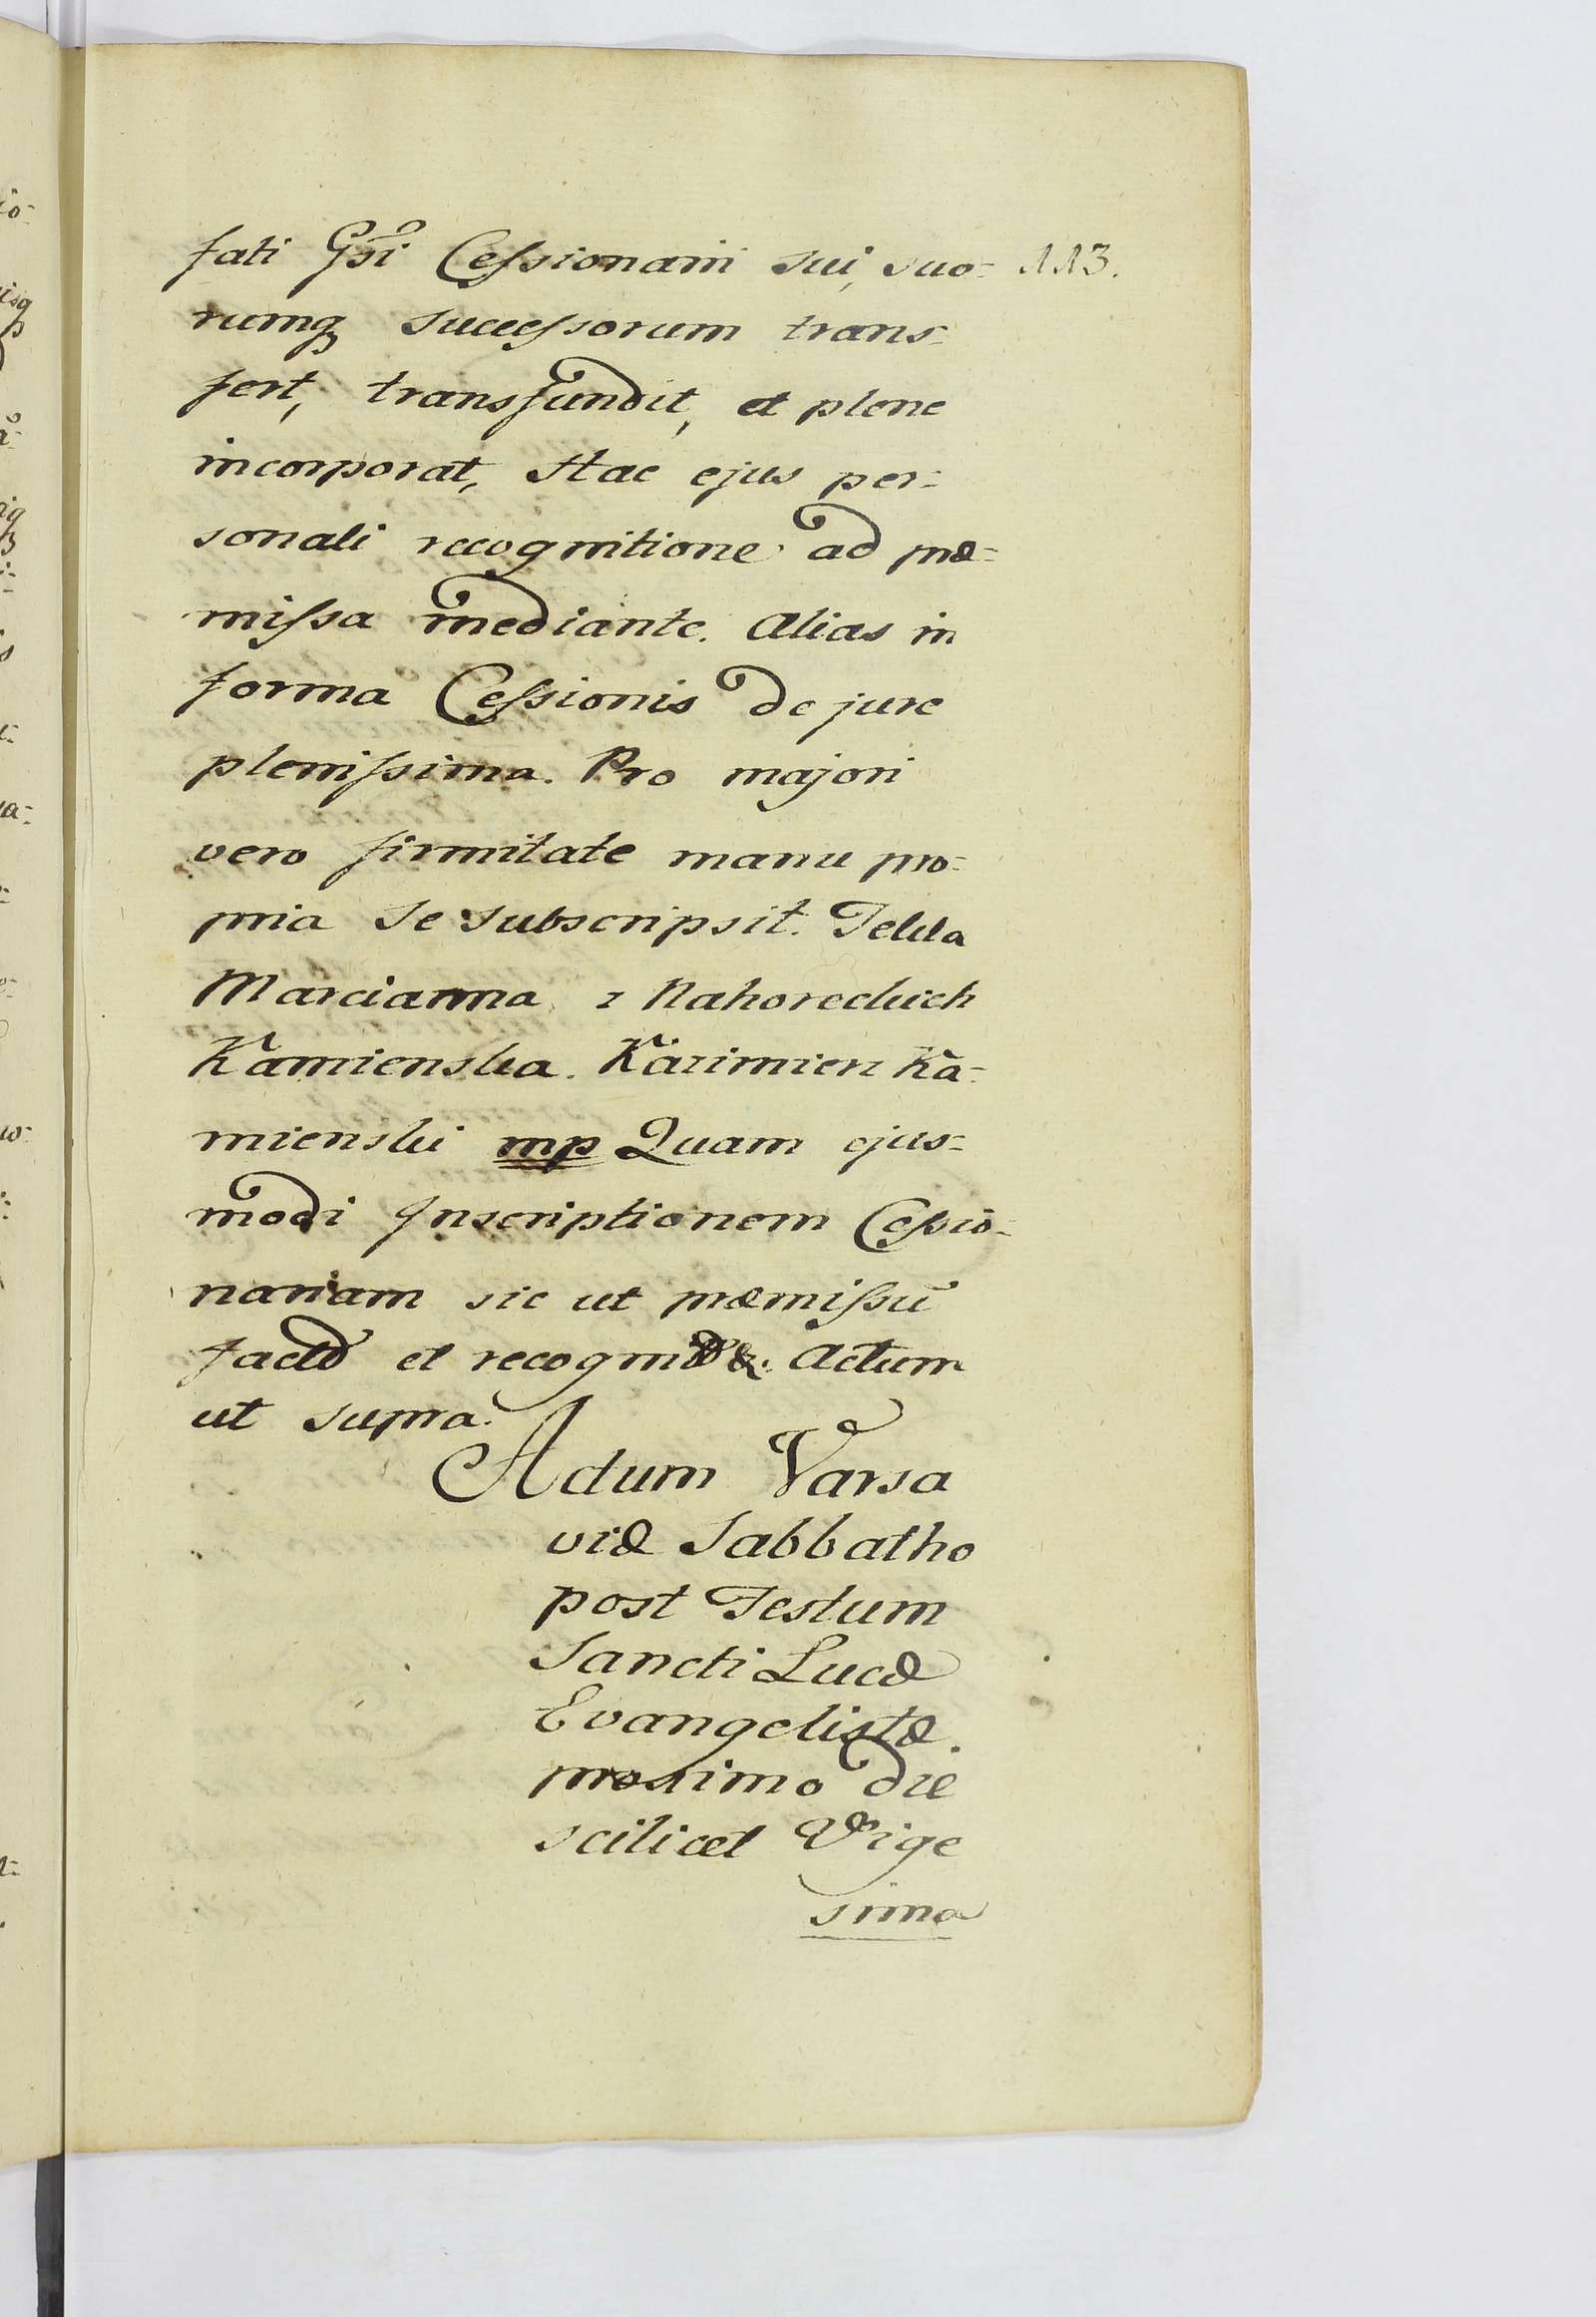 fati Gsi Cessionarii sui, suo= 113.
rumq successorum trans=
fert, transfundit, et plene
incorporat, Hac ejus per=
sonali recognitione ad præ=
missa mediante. Alias in
forma Cessionis de jure
plenissima. Pro majori
vero firmitate manu pro=
pria se subscripsit. Tekla
Marcianna z Nahoreckich
Kamienska. Kazimierz Ka=
mienski mp Quam ejus=
modi Inscriptionem Cessio=
nariam sic ut præmissũ
et &. Actum
ut supra.
Actum Varsa
viæ Sabbatho
post Festum
Sancti Lucæ
Evangelistæ.
proximo die
scilicet Vige
sima